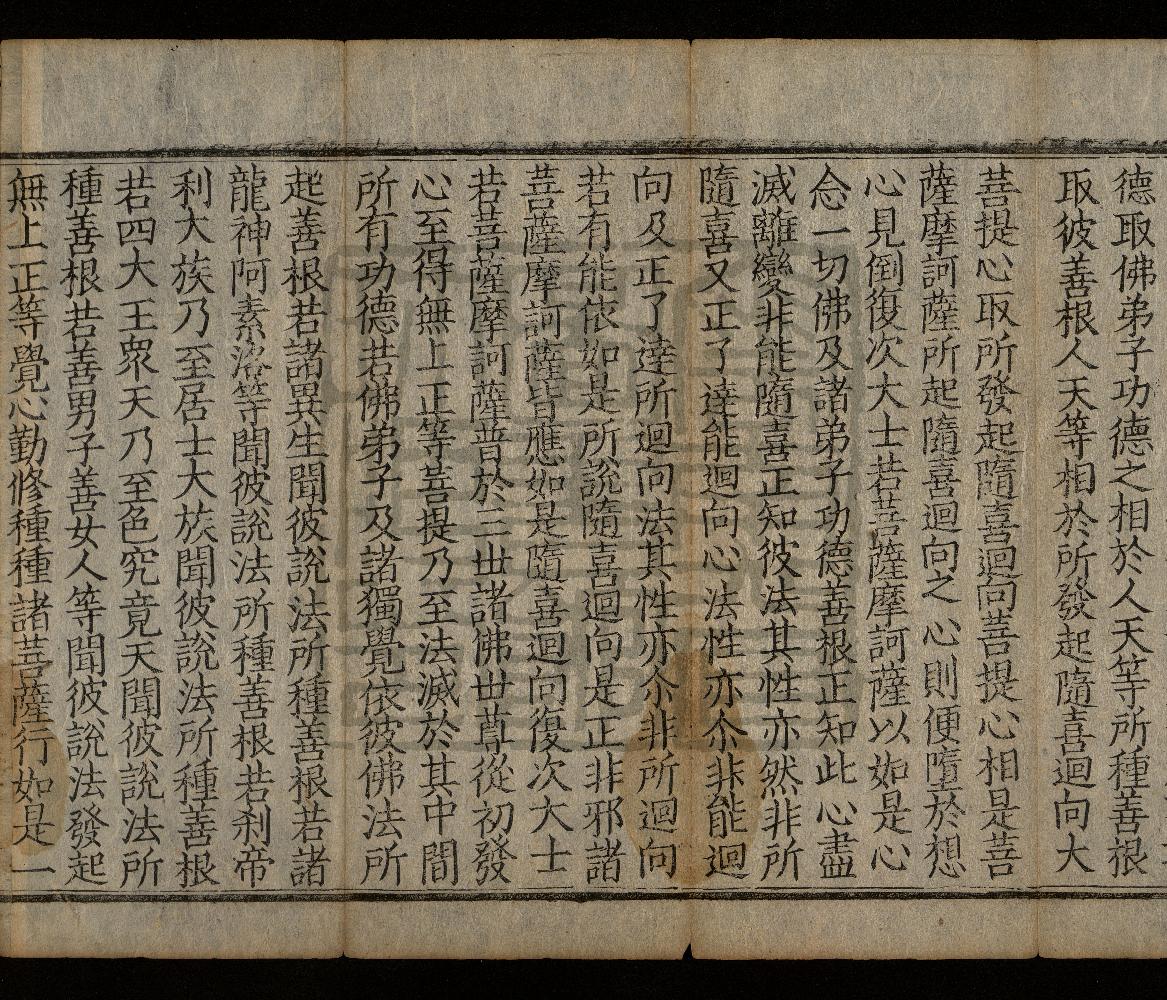 德取佛弟子功德之相於人天等所種善根
取彼善根人天等相於所發起隨喜迴向大
菩提心取所發起隨喜迴向菩提心相是菩
薩摩訶薩所起隨喜迴向之心則便墮於想
心見倒復次大士若菩薩摩訶薩以如是心
念一切佛及諸弟子功德善根正知此心盡
滅離變非能隨喜正知彼法其性亦然非所
隨喜又正了達能迴向心法性亦尒非能迴
向及正了達所迴向法其性亦尒非所迴向
若有能依如是所說隨喜迴向是正非邪諸
菩薩摩訶薩皆應如是隨喜迴向復次大士
若菩薩摩訶薩普於三世諸佛世尊從初發
心至得無上正等菩提乃至法滅於其中間
所有功德若佛弟子及諸獨覺依彼佛法所
起善根若諸異生聞彼說法所種善根若諸
龍神阿素洛等聞彼說法所種善根若刹帝
利大族乃至居士大族聞彼說法所種善根
若四大王衆天乃至色究竟天聞彼說法所
種善根若善男子善女人等聞彼說法發起
無上正等覺心勤修種種諸菩薩行如是一